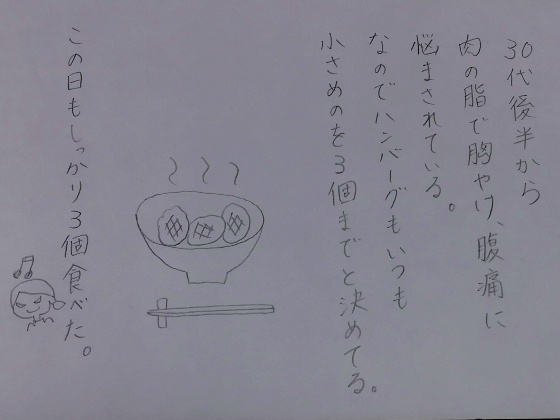 30代後半から
肉の脂で胸やけ、腹痛に
悩まされている。
なのでハンバーグもいつも
小さめのを3個までと決めてる。
この日もしっかり3個食べた。